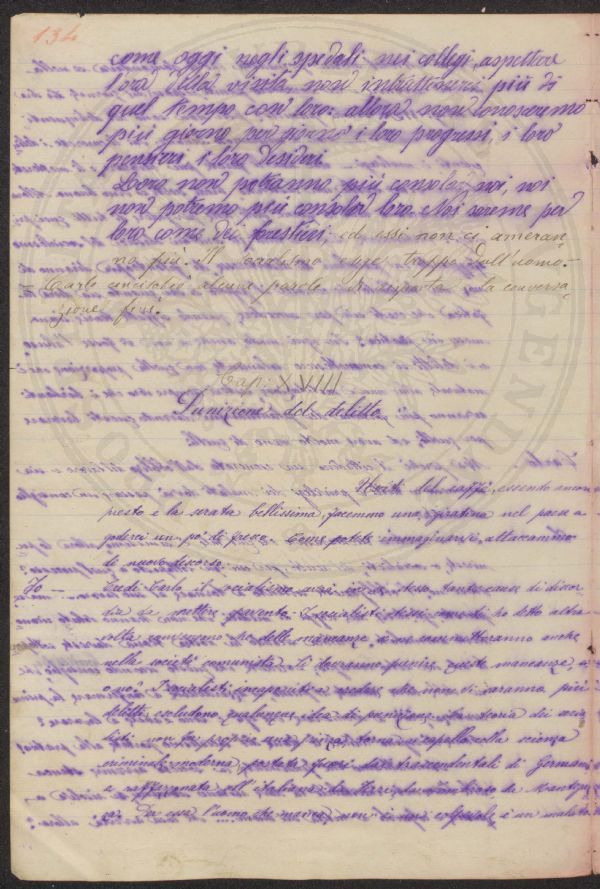 134
come oggi negli spedali nei collegi, aspettare
l'ora della visita, non intrattenerci più di
quel tempo con loro: allora non conosceremo
più giorno per giorno i loro progressi, i loro
pensieri, i loro desideri.
Loro non potranno più consolar noi, noi
non potremo più consolar loro. Noi saremo per
loro come dei forestieri, ed essi non ci ameran=
no più. Il socialismo esige troppo dall'uomo.
Carlo alcune parole di risposta e la conversa
zione finì.
Cap: XVIII
Punizione del delitto
Usciti dal caffè, essendo ancora
presto e la serata bellissima, facemmo una giratina nel paese a
goderci un po' di fresco. Come potete immaginarvi, attaccammo
di nuovo discorso.
Io — Vedi Carlo il socialismo stesso tante cause di discor
dia da mettere spavento. I socialisti stessi come ti ho detto altra
volta convengono che delle mancanze se ne commetteranno anche
nella società comunista. Si dovranno punire queste mancanze, o
o no? I socialisti a credere che non vi saranno più
delitti, escludono qualunque idea di punizione. La teoria dei socia
listi non fa proprio una colla scienza
criminale moderna, portata fuori dai trascendentali di Germania
e rafforzata all'italiana da Ferri, da Lombroso da Mantegaz
za. Da essi l'uomo che manca, non è mai colpevole è un malato